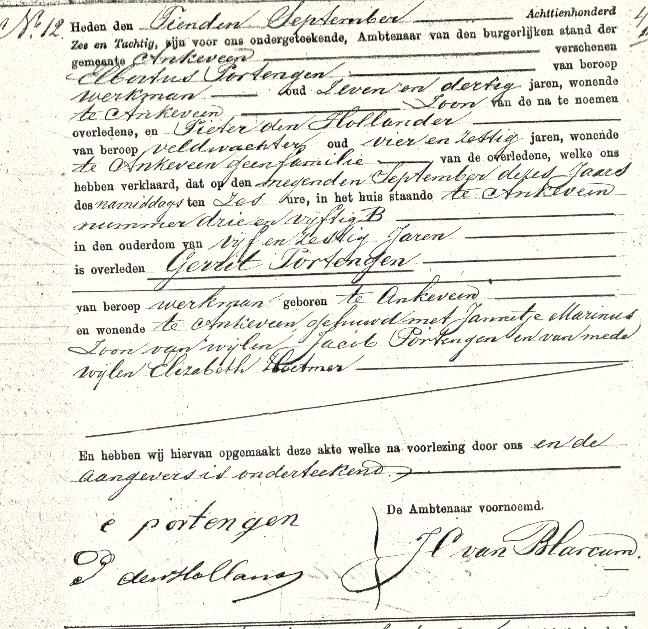 No. 12. Heden den Tienden September Achttienhonderd
Zes en Tachtig, zijn voor ons ondergeteekende, Ambtenaar van den burgerlijken stand der
gemeente Ankeveen verschenen
Elbertus Portengen van beroep
werkman oud zeven en dertig jaren, wonende
te Ankeveen Zoon van de na te noemen
overledene, en Pieter den Hollander
van beroep veldwachter oud vier en zestig jaren, wonende
te Ankeveen geen familie van de overledene, welke ons
hebben verklaard, dat op den negenden September dezes Jaars
des namiddags ten Zes ure, in het huis staande te Ankeveen
nummer drie en vijftig B
in den ouderdom van vijf en zestig Jaren
is overleden Gerrit Portengen
van beroep werkman geboren te Ankeveen
en wonende te Ankeveen gehuwd met Jannetje Marinus
Zoon van wijlen Jacob Portengen en van mede
wijlen Elizabeth
En hebben wij hiervan opgemaakt deze akte welke na voorlezing door ons en de
aangevers is onderteekend
De Ambtenaar voornoemd.
e portengen
P den Hollander
J C van Blarcum.